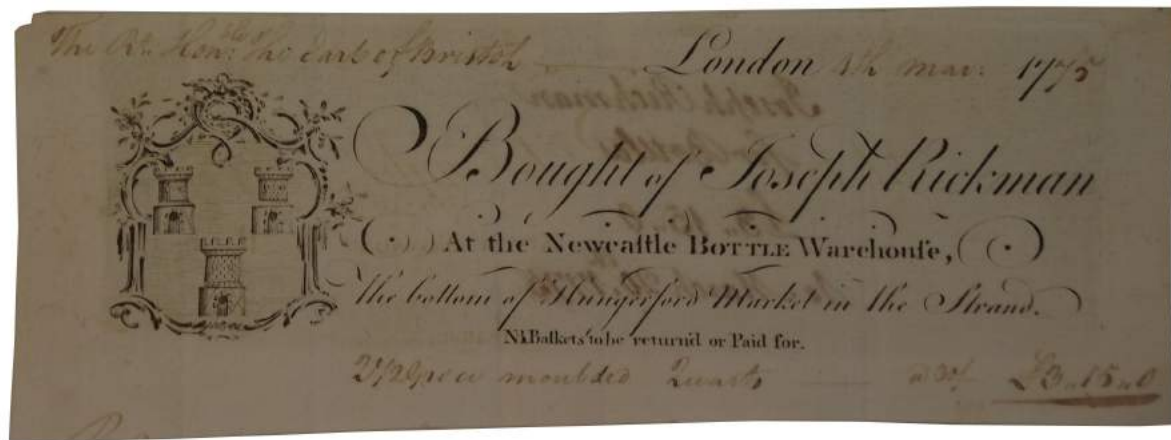 The Rt. Honble. The Earl of Bristol London 4th Mar: 1775
Bought of Joseph Rickman
At the Newcaſtle BOTTLE Warehouſe,
the bottom of Hungerford Market in the Strand.
NB Baſkets to be return'd or Paid for.
2½ moulded Quarts a 30/ £3..15..0